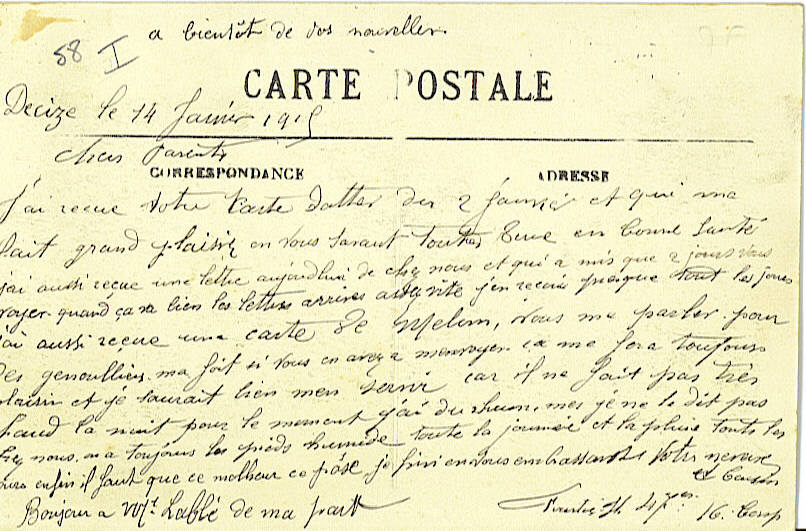 a bientôt de vos nouvelles
58 I
CARTE POSTALE
Decize le 14 Janvier 1915
chers Parents
CORRESPONDANCE
ADRESSE
J'ai reçue votre Carte datter du 2 Janvié et qui ma
fait grand plaisir en vous savant toutes deux en bonne Santé
j'ai aussi reçue une lettre aujourdhui de chez nous et qui a mis que 2 jours vous
voyer quand ça va bien les lettres arrives assé vite j'en recois presque tout les jours
j'ai aussi reçue une carte de Melun, vous me parler pour
des genoulliers ma foit si vous en avez a menvoyer ça me fera toujours
plaisir et je saurait bien men servir car il ne fait pas très
chaud la nuit pour le moment j'ai du rhum, mes je ne le dit pas
chez nous. on a toujours les pieds humide toute la journée et la pluie touts les
jours enfin il faut que ce malheur ce pase je fini en vous embrassant Votre neveux
et Cousin
Bonjour a Mr Lablé de ma part
16 Comp